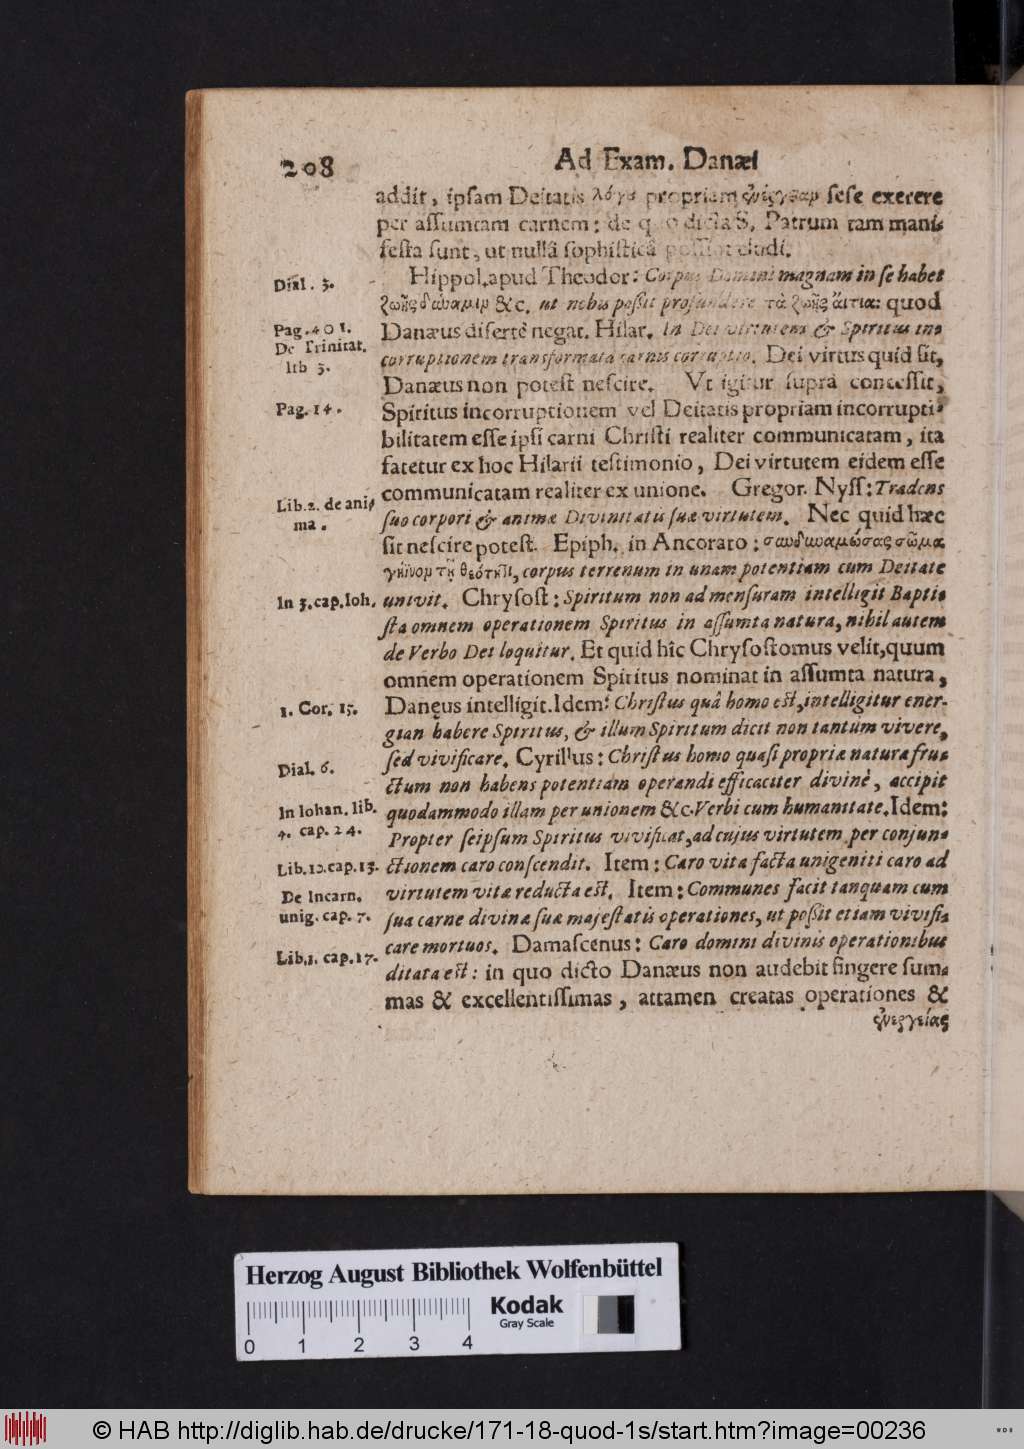 208 Ad Exam. Danæi
addit, ipsam Deitatis λόγȣ propriam ἐνέργειαν sese exerere
per assumtam carnem: de quo dicta S. Patrum tam mani-
festa sunt, ut nullâ sophisticâ possint eludi.
Dial. 3.
Hippol. apud Theodor: Corpus Domini magnam in se habet
ζωῆς δύναμιν &c. ut nobis poßit profundere τὰ ζωῆς ἄιτια: quod
Pag. 401.
Danæus disertè negat. Hilar. In Dei virtutem & Spiritus in-
De Trinitat.
corruptionem transformata carnis corruptio. Dei virtus quid sit,
lib 3.
Danæus non potest nescire. Vt igitur suprà concessit,
Pag. 14.
Spiritus incorruptionem vel Deitatis propriam incorrupti-
bilitatem esse ipsi carni Christi realiter communicatam, ita
fatetur ex hoc Hilarii testimonio, Dei virtutem eidem esse
communicatam realiter ex unione. Gregor. Nyss: Tradens
Lib. 2. de ani-
ma.
suo corpori & animæ Divinitatis suæ virtutem. Nec quid hæc
sit nescire potest. Epiph. in Ancorato: συνδυναμώσας σῶμα
γήϊνον τῇ θεότητι, corpus terrenum in unam potentiam cum Deitate
In 3. cap. Ioh.
univit. Chrysost: Spiritum non ad mensuram intelligit Bapti-
sta omnem operationem Spiritus in assumta natura, nihil autem
de Verbo Dei loquitur. Et quid hîc Chrysostomus velit, quum
omnem operationem Spiritus nominat in assumta natura,
1. Cor. 15.
Danęus intelligit. Idem: Christus quâ homo est, intelligitur ener-
gian habere Spiritus, & illum Spiritum dicit non tantum vivere,
Dial. 6.
sed vivificare. Cyrillus: Christus homo quasi propriæ naturæ fru-
ctum non habens potentiam operandi efficaciter divinè, accipit
In Iohan. lib.
4. cap. 24.
quodammodo illam per unionem &c. Verbi cum humanitate. Idem:
Propter seipsum Spiritus vivificat, ad cujus virtutem per conjun-
Lib. 10. cap. 13.
ctionem caro conscendit. Item: Caro vita facta unigeniti caro ad
De Incarn.
unig. cap. 7.
virtutem vitæ reducta est. Item: Communes facit tanquam cum
sua carne divinæ suæ majestatis operationes, ut poßit etiam vivifi-
Lib. 1. cap. 17.
care mortuos. Damascenus: Caro domini divinis operationibus
ditata est: in quo dicto Danæus non audebit fingere sum-
mas & excellentissimas, attamen creatas operationes &
ἐνεργείας
Herzog August Bibliothek Wolfenbüttel
Kodak
Gray Scale
0 1 2 3 4
© HAB http://diglib.hab.de/drucke/171-18-quod-1s/start.htm?image=00236